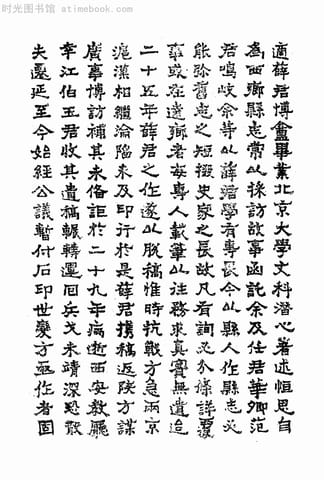 时光图书馆 atimebook.com
適薛君博盦畢業北京大學文科潛心著述恒思自
為西鄉縣志常以採訪故事函託余及任君華卿范
君鳴岐余等以薛君學有專長今以縣人作縣志必
能弥舊志之短掇史家之長故凡有詢必分條詳覆
事或在遠鄉者每專人載筆以往務求真實無遺迨
二十五年薛君之作遂以脫稿惟時抗戰方急兩京
滬漢相繼淪陷未及印行於是薛君攜稿返陝方謀
廣事博訪補其未備詎於二十九年病逝西安教廳
幸江伯玉君收其遺稿輾轉運回兵戈未靖深恐散
失遷延至今始經公議暫付石印世變方亟作者固